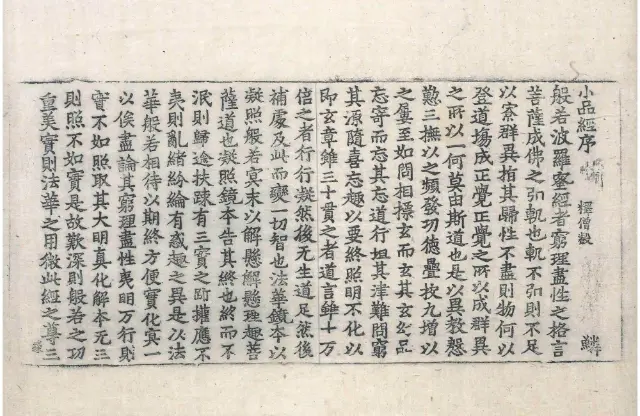 小品經序 釋僧叡 鱗
般若波羅蜜經者窮理盡性之格言
菩薩成佛之弘軌也軌不弘則不足
以寡群異指其歸性不盡則物何以
登道場成正覺正覺之所以成群異
之所以一何莫由斯道也是以異教慇
懃三撫以之頻發功德疊校九增以
之屢至如問相摽玄而玄其玄幻品
忘寄而忘其忘道行坦其津難問窮
其源隨喜忘趣以要終照明不化以
即玄章雖三十貫之者道言雖十万
倍之者行行凝然後无生道足然後
補處及此而變一切智也法華鏡本以
凝照般若冥末以解懸解懸理趣菩
薩道也凝照鏡本告其終也終而不
泯則歸途扶疎有三實之跡權應不
夷則亂緒紛綸有惑趣之異是以法
華般若相待以期終方便實化冥一
以俟盡論其窮理盡性夷明万行則
實不如照取其大明真化解本无三
則照不如實是故歎深則般若之功
重美實則法華之用微此經之尊三